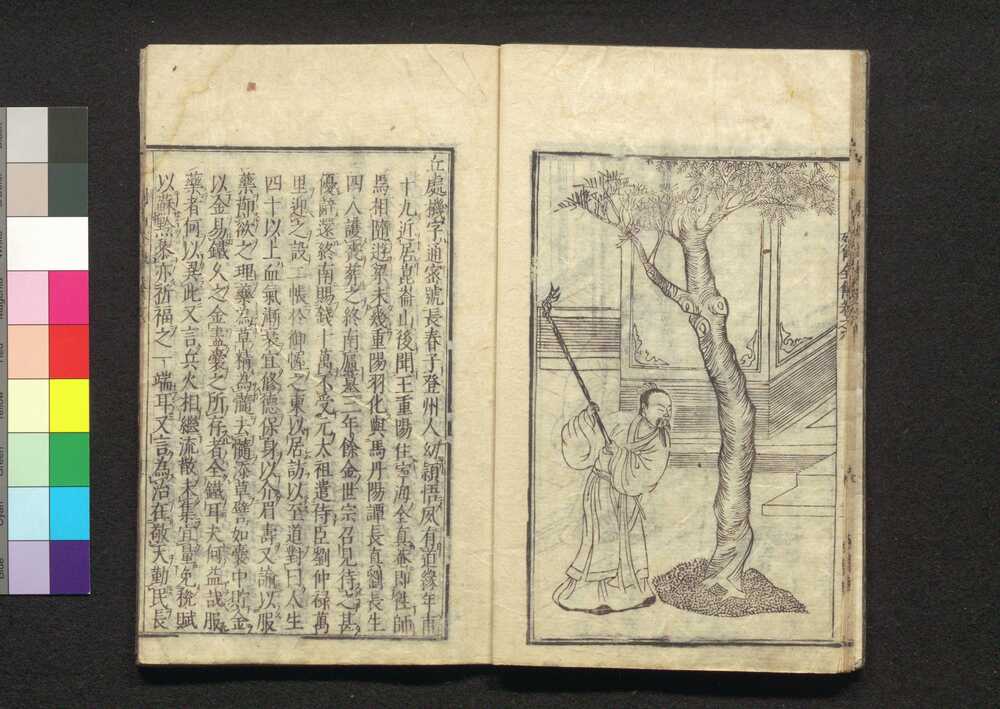 丘處機字通密號長春子登州人幼頴悟夙有道縁年甫
十九近居崑崙山後聞王重陽住寧海全真菴即往師
焉相隨遊梁未幾重陽羽化與馬丹陽譚長真劉長生
四人護喪葬之終南廬墓三年餘金世宗召見待之甚
優辭還終南賜錢十萬不受元太祖遣侍臣劉仲祿萬
里迎之設二帳於御幄之東以居訪以至道對曰人生
四十以上血氣漸衰宜修德保身以介眉壽又諭以服
藥抑欲之理藥為草精為髓去髓添草譬如囊中貯金
以金易鐵久之金盡囊之所存者全鐵耳夫何益哉服
藥者何以異此又言兵火相繼流散未集宜量免稅賦
以蘇黔黎亦祈福之一端耳又言為治在敬天勤民長